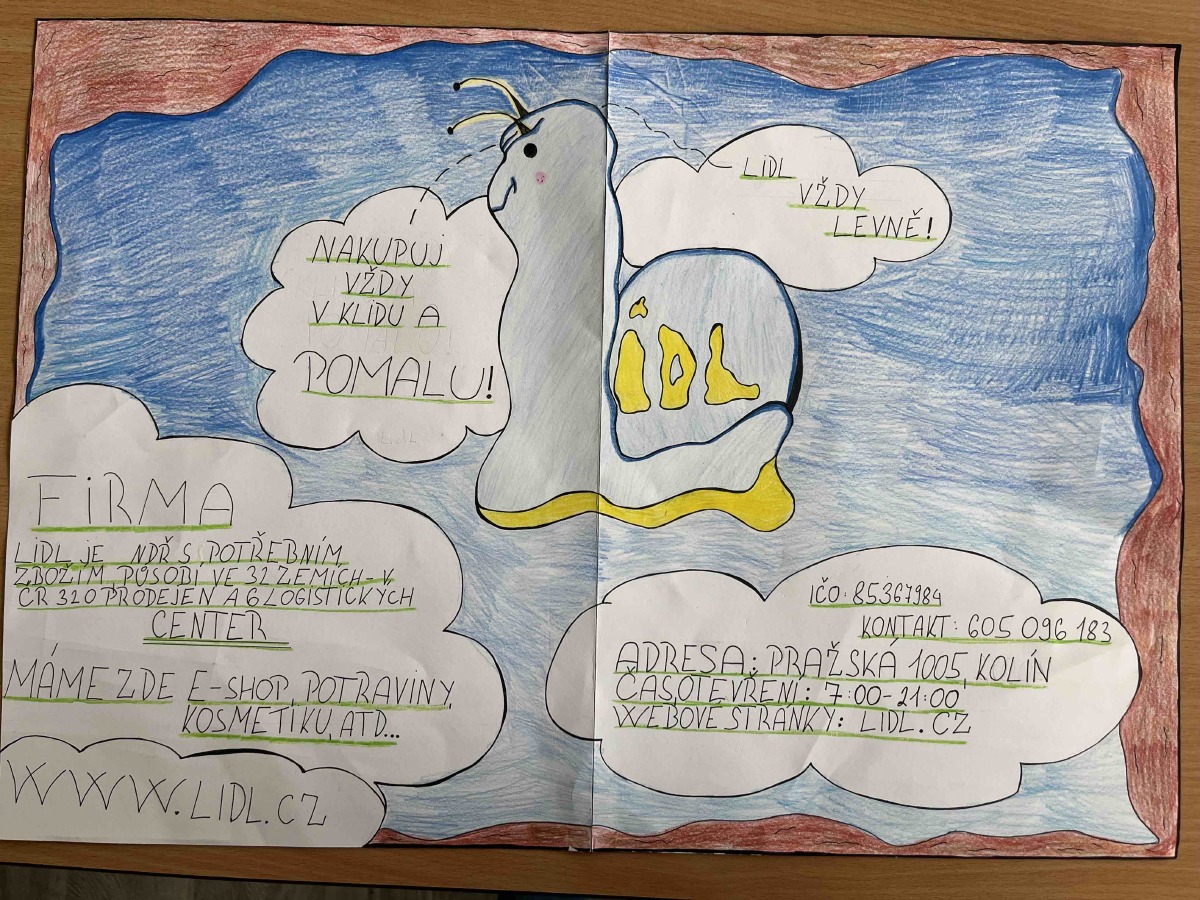 LiDL
VŽDY
LEVNĚ!
NAKUPUJ
VŽDY
V KLiDU A
POMALU!
iDL
FiRMA
LiDL JE NDŘ S POTŘEBNÍM
ZBOŽÍM, PŮSOBÍ VE 32 ZEMÍCH - V
ČR 320 PRODEJEN A 6 LOGISTICKÝCH
CENTER
MÁME ZDE E-SHOP, POTRAVINY,
KOSMETIKU, ATD...
WWW.LIDL.CZ
IČO: 85367984
KONTAKT: 605 096 183
ADRESA: PRAŽSKÁ 1005, KOLÍN
ČAS OTEVŘENÍ: 7:00-21:00
WEBOVÉ STRÁNKY: LIDL.CZ